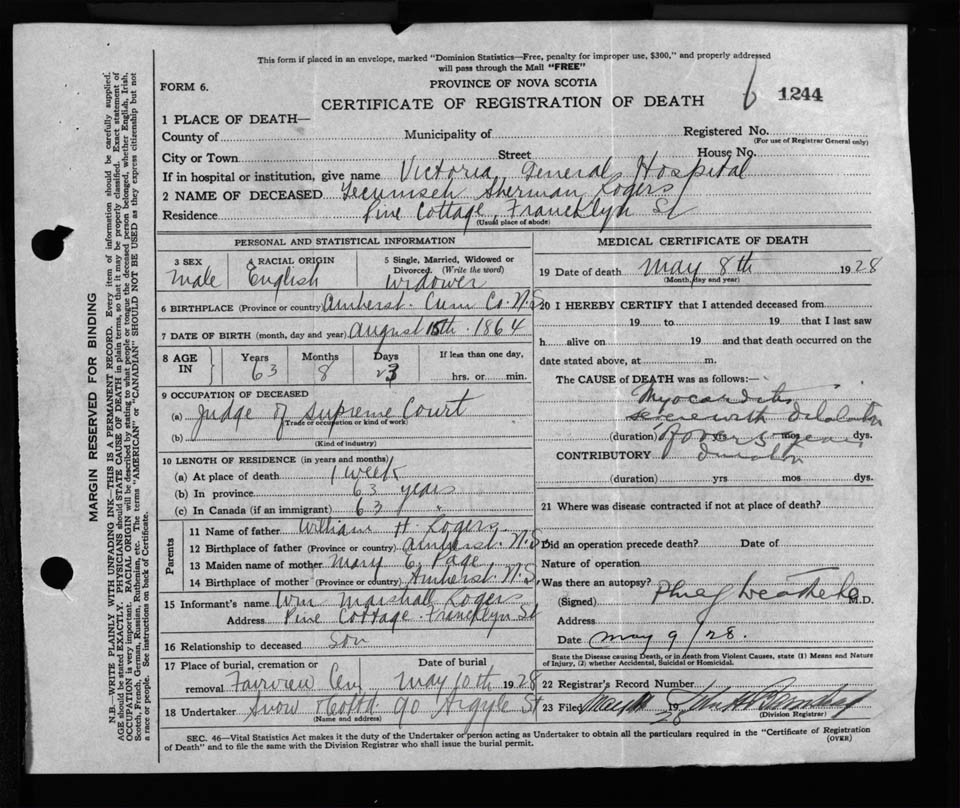 This form if placed in an envelope, marked "Dominion Statistics—Free, penalty for improper use, $300," and properly addressed
will pass through the Mail "FREE"
FORM 6.
PROVINCE OF NOVA SCOTIA
CERTIFICATE OF REGISTRATION OF DEATH
6 1244
1 PLACE OF DEATH—
County of Municipality of Registered No.
(For use of Registrar General only)
City or Town Street House No.
If in hospital or institution, give name Victoria General Hospital
2 NAME OF DECEASED Tecumseh Sherman Rogers
Residence Pine Cottage, Francklyn St
(Usual place of abode)
PERSONAL AND STATISTICAL INFORMATION
3 SEX 4 RACIAL ORIGIN 5 Single, Married, Widowed or
Divorced. (Write the word)
Male English widower
6 BIRTHPLACE (Province or country) Amherst. Cum Co. N.S.
7 DATE OF BIRTH (month, day and year) August 15th. 1864
8 AGE IN Years Months Days If less than one day,
63 8 23 hrs. or min.
9 OCCUPATION OF DECEASED
(a) Judge of Supreme Court
(Trade or occupation or kind of work)
(b)
(Kind of industry)
10 LENGTH OF RESIDENCE (in years and months)
(a) At place of death 1 week
(b) In province 63 years
(c) In Canada (if an immigrant) 63 "
Parents
11 Name of father William H. Rogers
12 Birthplace of father (Province or country) Amherst. N.S.
13 Maiden name of mother Mary C. Page
14 Birthplace of mother (Province or country) Amherst. N.S.
15 Informant's name Wm Marshall Rogers
Address Pine Cottage. Francklyn St
16 Relationship to deceased Son
17 Place of burial, cremation or Date of burial
removal Fairview Cem May 10th 1928
18 Undertaker Snow & Co Ltd 90 Argyle St
(Name and address)
MEDICAL CERTIFICATE OF DEATH
19 Date of death May 8th 1928
(Month, day and year)
20 I HEREBY CERTIFY that I attended deceased from
19 to 19 that I last saw
h alive on 19 and that death occurred on the
date stated above, at m.
The CAUSE of DEATH was as follows:—
Myocarditis
severe with dilatation
(duration) of over 5 years yrs mos dys.
CONTRIBUTORY duration
(duration) yrs mos dys.
21 Where was disease contracted if not at place of death?
Did an operation precede death? Date of
Nature of operation
Was there an autopsy?
(Signed) Weatherbe M.D.
Address
Date May 9/28.
State the Disease causing Death, or in death from Violent Causes, state (1) Means and Nature
of Injury, (2) whether Accidental, Suicidal or Homicidal.
22 Registrar's Record Number
23 Filed May 19 28
(Division Registrar)
SEC. 46—Vital Statistics Act makes it the duty of the Undertaker or person acting as Undertaker to obtain all the particulars required in the "Certificate of Registration
of Death" and to file the same with the Division Registrar who shall issue the burial permit.
(OVER)
MARGIN RESERVED FOR BINDING
N.B.—WRITE PLAINLY WITH UNFADING INK—THIS IS A PERMANENT RECORD. Every item of information should be carefully supplied.
AGE should be stated EXACTLY. PHYSICIANS should STATE CAUSE OF DEATH in plain terms, so that it may be properly classified. Exact statement of
OCCUPATION is very important. RACIAL ORIGIN will be described by stating to what people or tongue the deceased person belonged, whether English, Irish,
Scotch, French, German, Russian, Ruthenian, etc. The terms "AMERICAN" or "CANADIAN" SHOULD NOT BE USED as they express citizenship but not
a race or people. See instructions on back of Certificate.